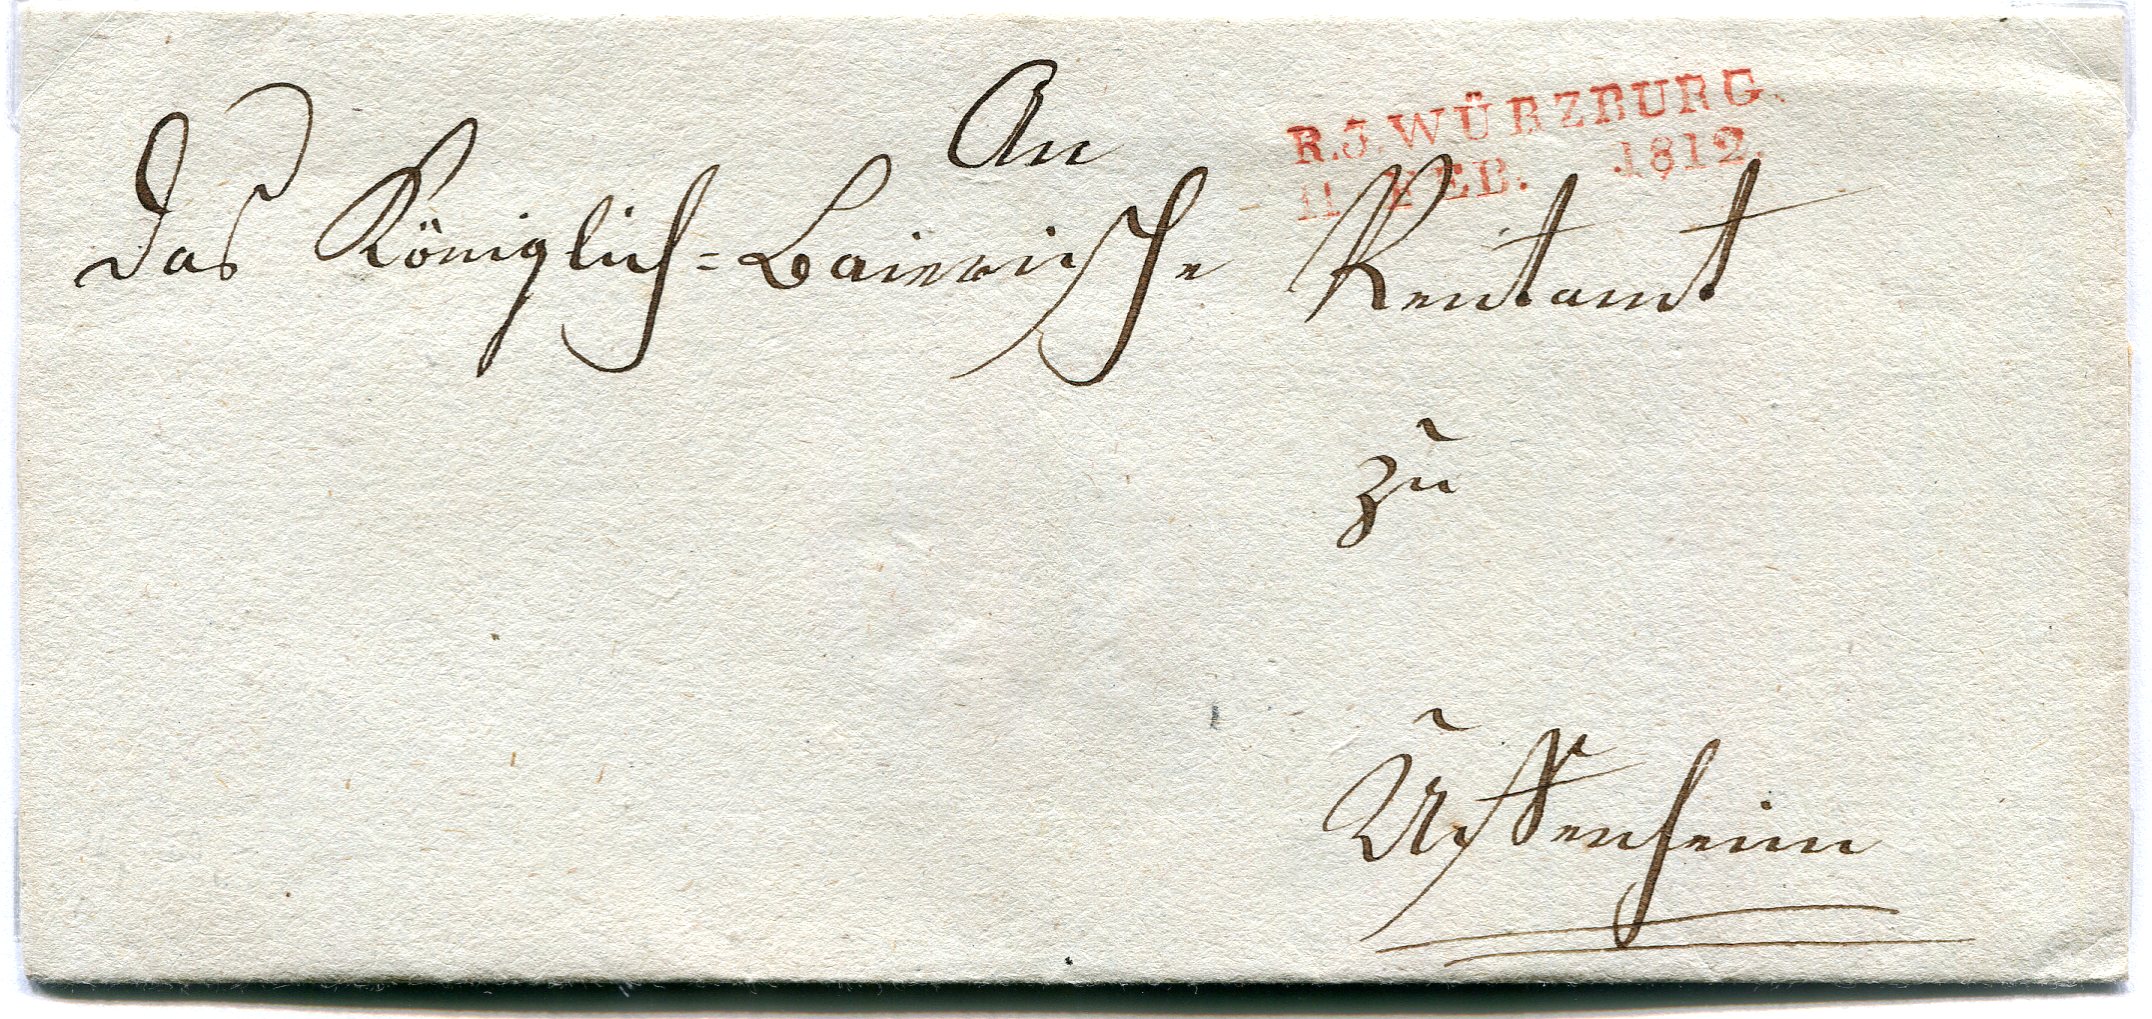 An
R.J.WÜRZBURG.
11 FEB. 1812.
das Königlich=Baierische Rentamt
zu
Uffenheim